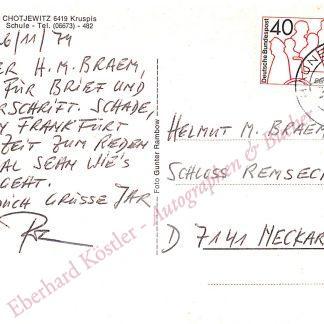 CHOTJEWITZ 6419 Kruspis
Schule - Tel. (06673) - 482
6/11/79
ER H. M. BRAEM,
FÜR BRIEF UND
ERSCHRIFT. SCHADE,
FRANKFURT
ZEIT ZUM REDEN
AL SEHN WIE'S
GEHT.
GRÜSSE JAR
Foto Gunter Rambow
40
Deutsche Bundespost
HELMUT M. BRAEM
SCHLOSS REMSECK
D 7141 NECKAR
Eberhard Köstler - Autographen & Bücher